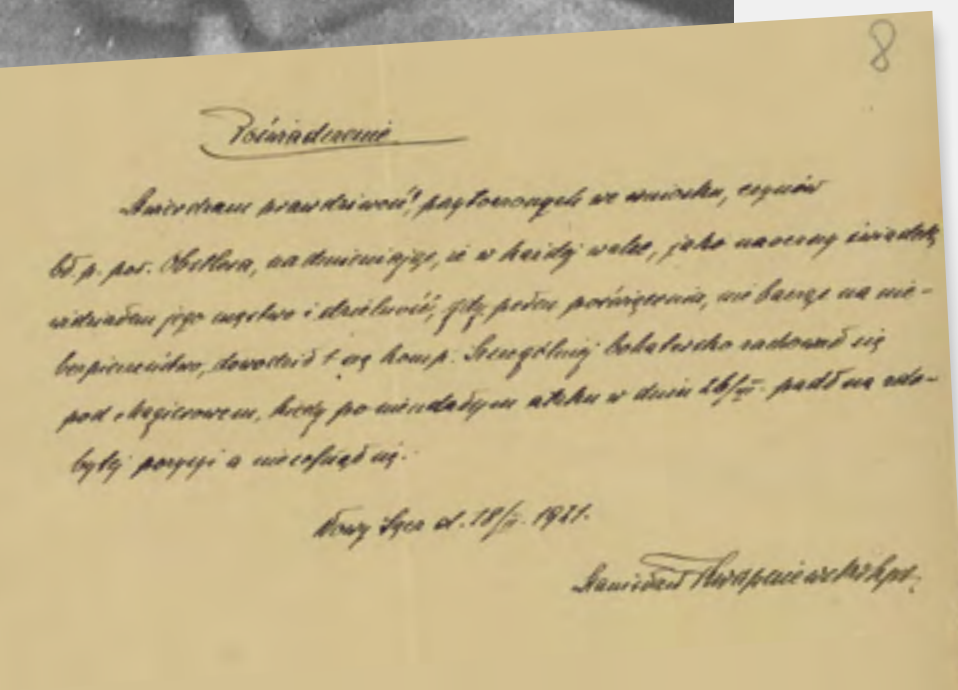 8
Poświadczenie
Stwierdzam prawdziwość, przytoczonych we wniosku, czynów
bł. p. por. Obetlera, nadmieniając, że w każdej walce, jako naoczny świadek
widziałem jego męstwo i dzielność, gdy pełen poświęcenia, nie bacząc na nie-
bezpieczeństwo, dowodził komp. Szczególniej bohatersko zachował się
pod Magierowem, kiedy po nieudałym ataku w dniu padł na zdo-
bytej pozycji a nie cofnął się.
Nowy Sącz d. 18/II. 1921.
Stanisław kpt.